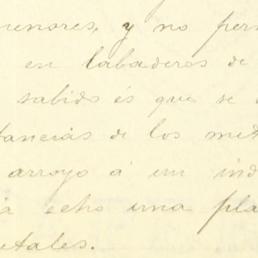 menores, y no per
en labaderos de
sabido és que se
tancias de los met
arroyo á un ind
echo una pla
etales.